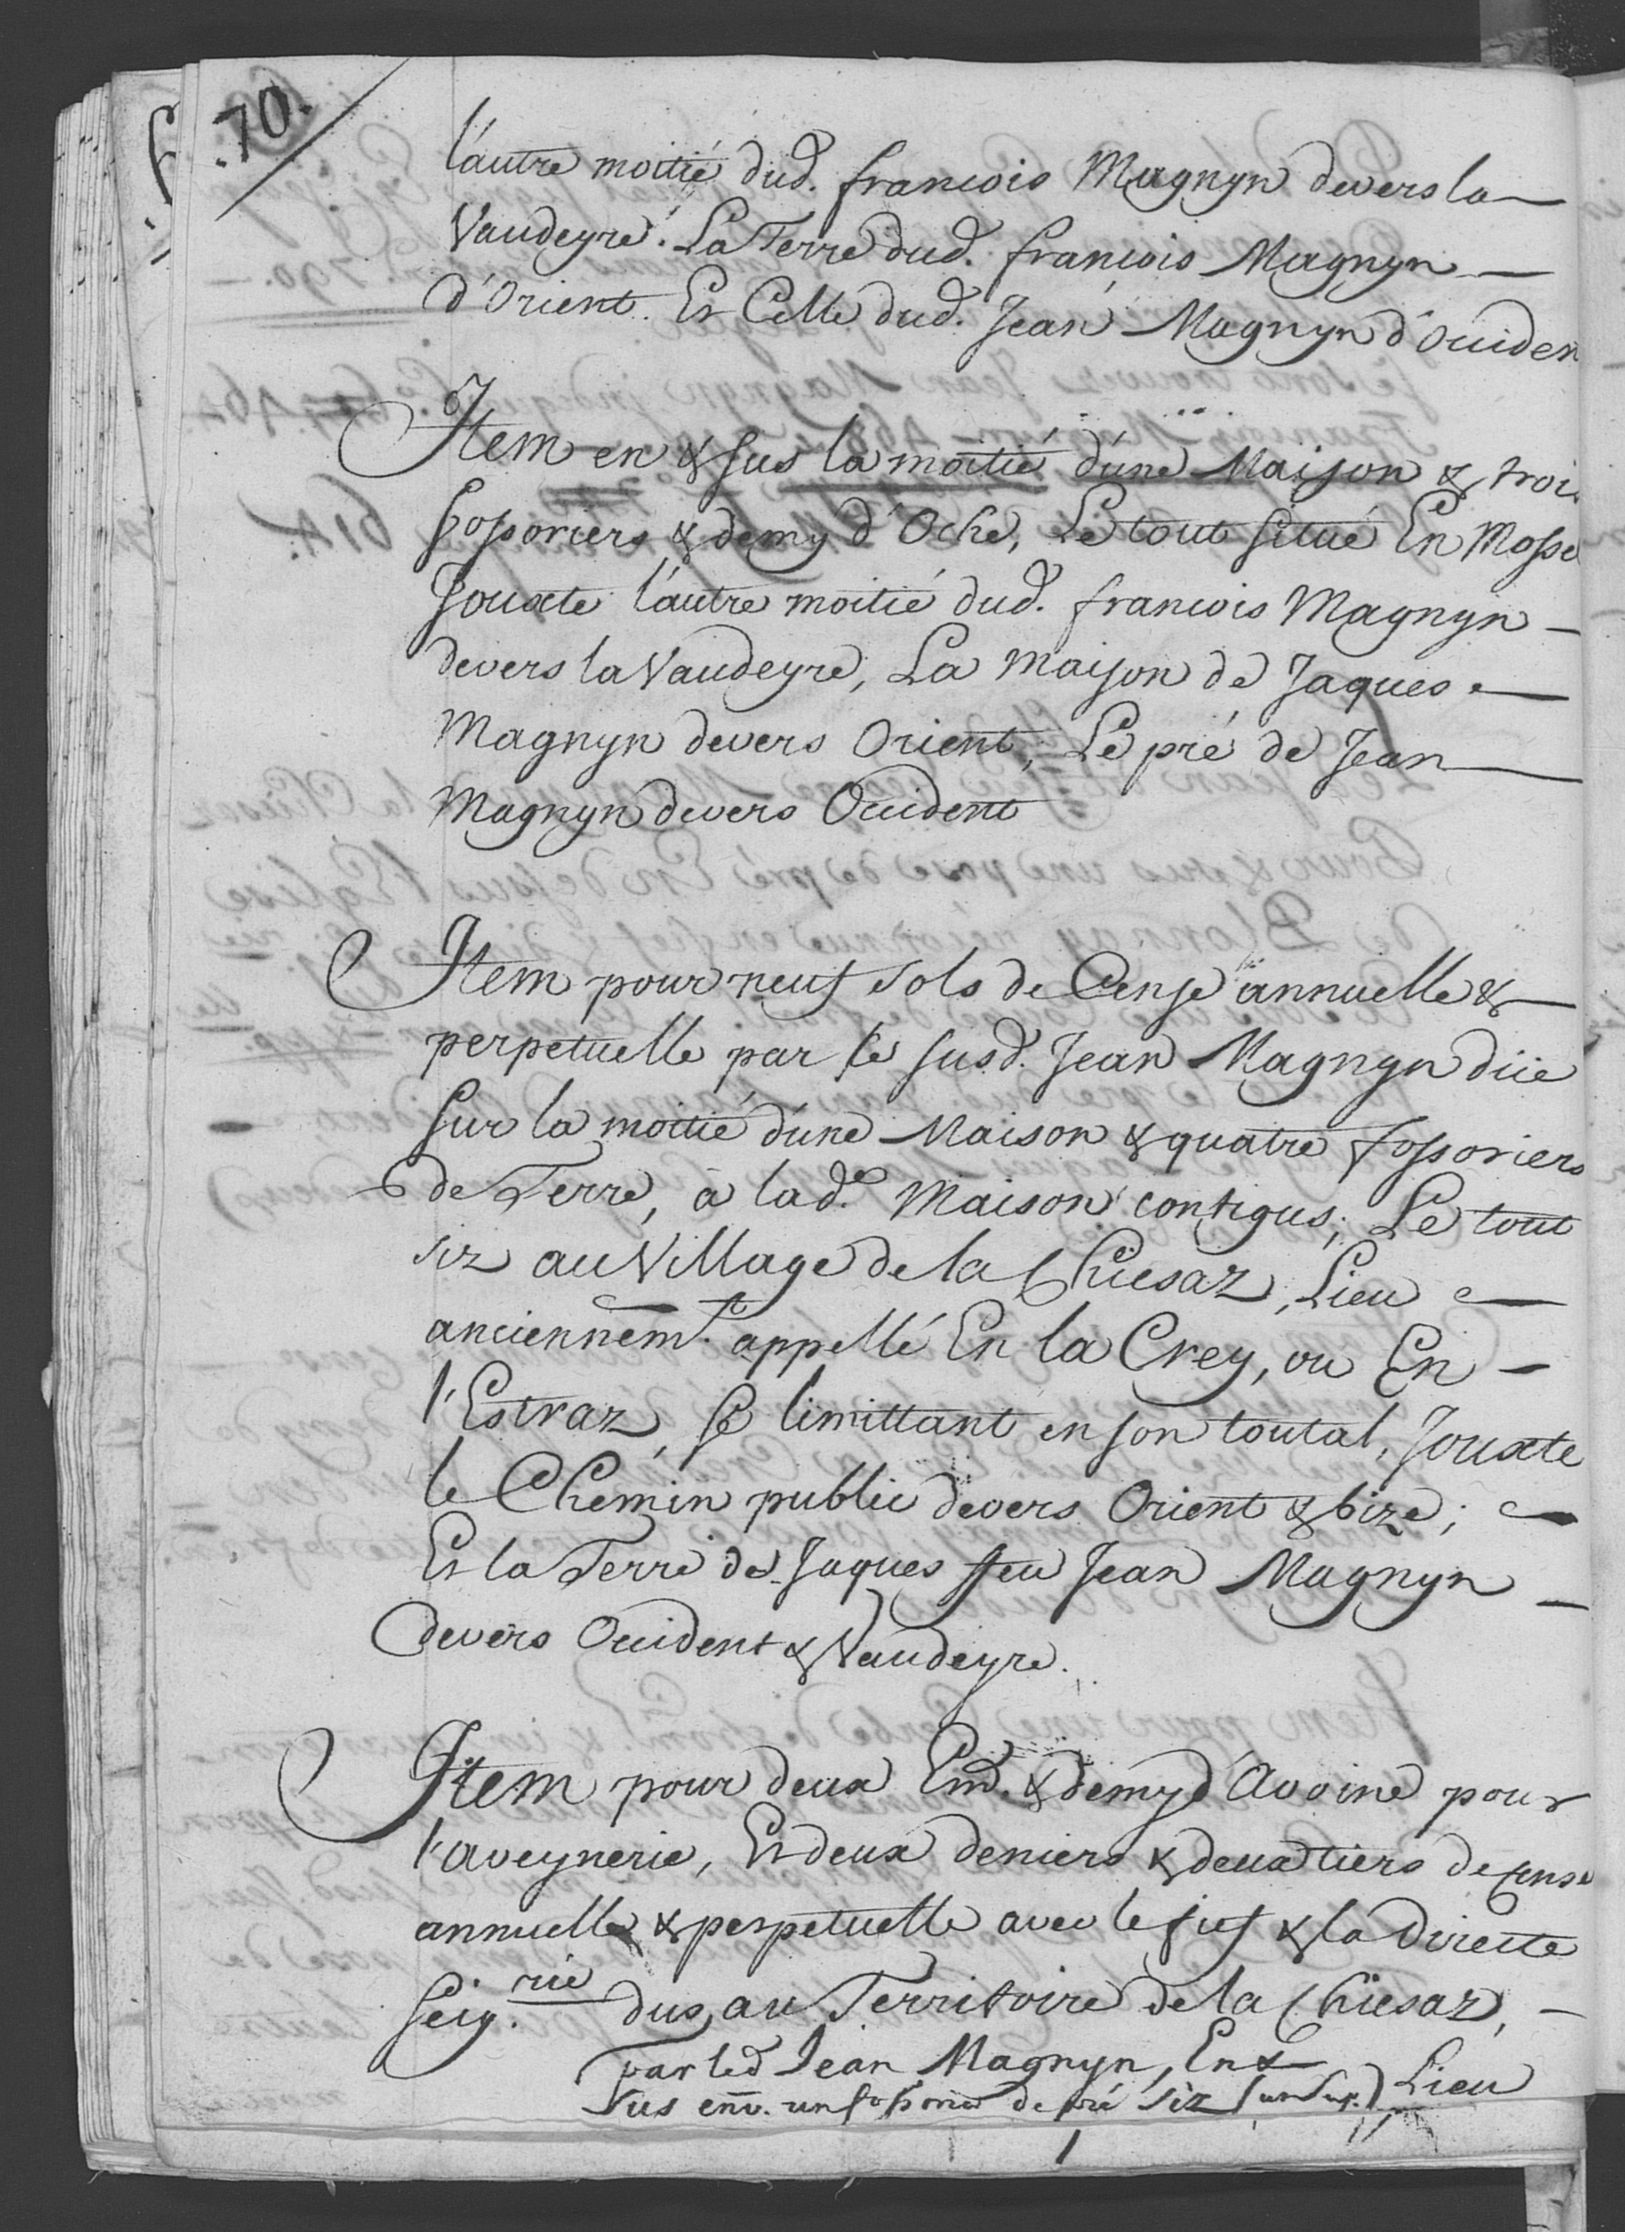 .70.
l'autre moitié dud. françois Magnyn devers la
Vaudeyre. La Terre dud. françois Magnyn
d'Orient. Et Celle dud. Jean Magnyn d'Occiden
Item en & sus la moitié d'une Maison & troi
fossoriers & demy d'Oche, Le tout situé En Mosse
Jouxte l'autre moitié dud. françois Magnyn
devers la Vaudeyre, La Maison de Jaques
Magnyn devers Orient; Le pré de Jean
Magnyn devers Occident
Item pour neuf sols de Cense annuelle &
perpetuelle par le susd. Jean Magnyn düe
Sur la moitié d'une Maison & quatre fossoriers
de Terre, à lad.e Maison contigus; Le tout
siz au Village de la Chiesaz, Lieu
anciennem.t appellé En la Crey, ou En
l'Estraz, se limittant en son toutal, Jouxte
le Chemin public devers Orient & bize;
Et la Terre de Jaques feu Jean Magnyn
devers Occident & Vaudeyre.
Item pour deux Em. & demy d'Avoine pour
l'aveynerie, Et deux deniers & deux tiers de cense
annuelle & perpetuelle avec le fief & la Directe
Seig.rie dus, au Territoire de la Chiesaz,
par led Jean Magnyn, En &
sus env. un de pré siz Lieu